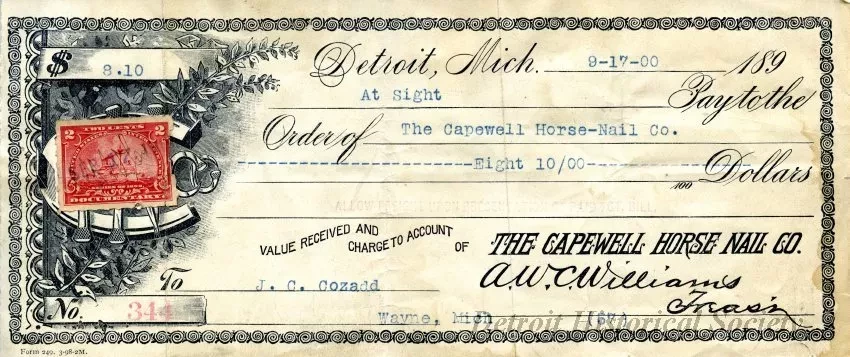 $ 8.10
Detroit, Mich. 9-17-00 189
At Sight Pay to the
Order of The Capewell Horse-Nail Co.
Eight 10/00 Dollars
100
2 TWO CENTS 2
DOCUMENTARY
ALLOW FREIGHT UPON
VALUE RECEIVED AND
CHARGE TO ACCOUNT
OF THE CAPEWELL HORSE NAIL CO.
A.W.C. Williams
Treas'r
To J. C. Cozadd
Wayne, Mich
No. 344
Detroit Historical Society
Form 240. 3-98-2M.